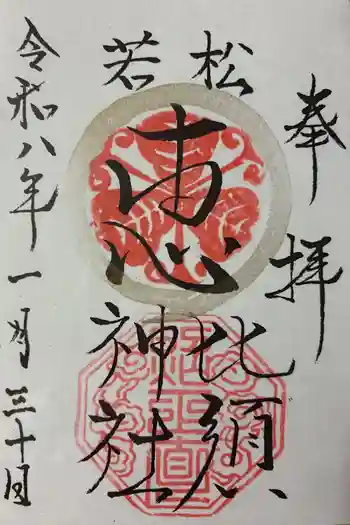 奉拝
松
若
恵比須
神社
令和八年一月三十日